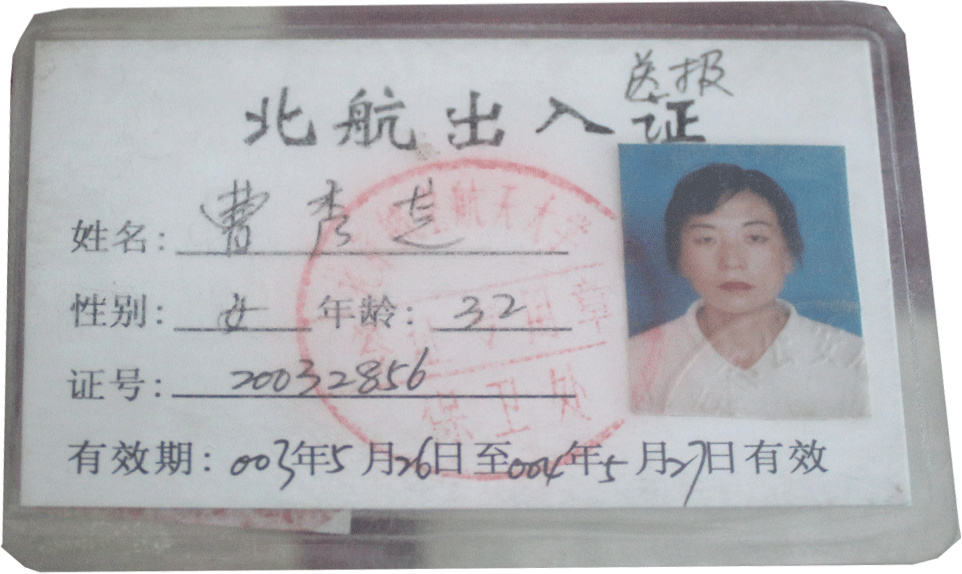 送报
北航出入证
姓名: 曹秀芝
性别: 女 年齢: 32
证号: 20032856
有效期: 003年5月26日至004年5月27日有效
航天大学
专用章
保卫处